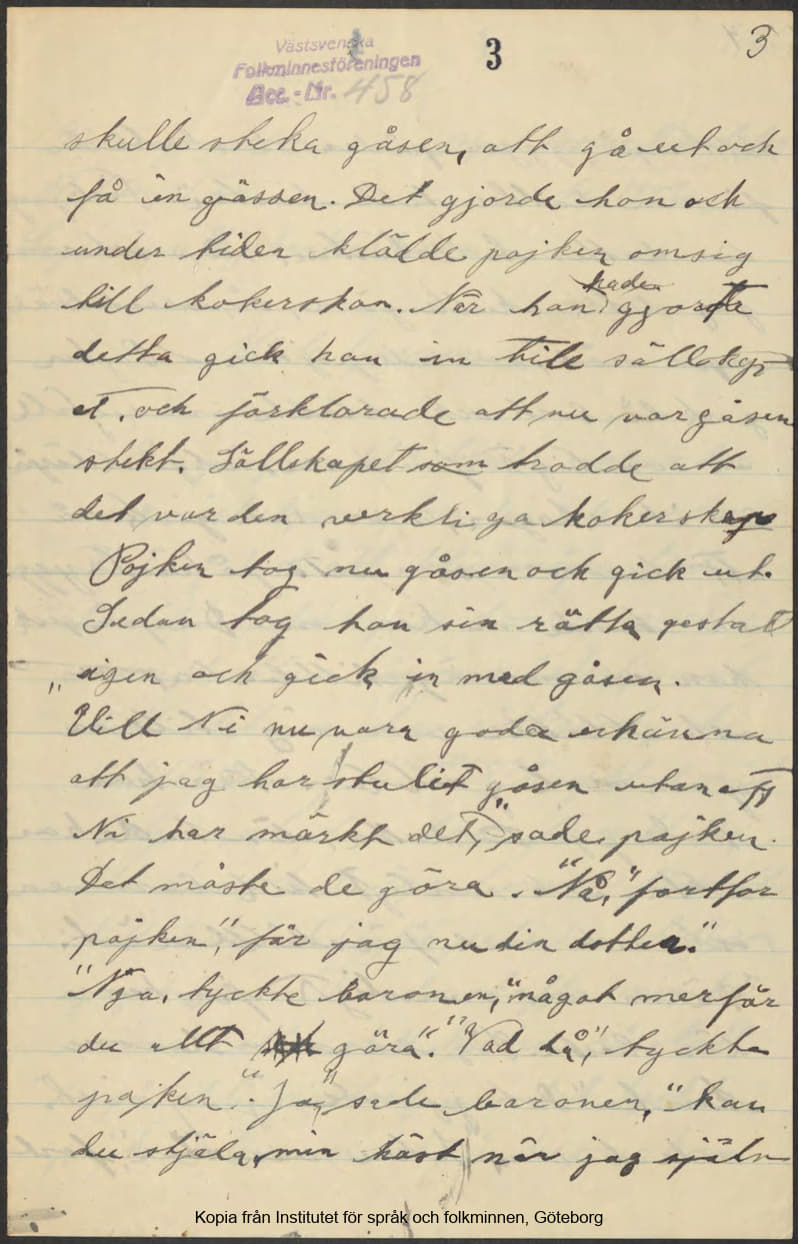 3
3
Västsvenska
Folkminnesföreningen
Acc. - Nr. 458
skulle steka gåsen, att gå ut och
få in gässen. Det gjorde hon och
under tiden klädde pojken omsig
till kokerskan. När han hade gjort
detta gick han in till sällskap-
et, och förklarade att nu var gåsen
stekt. Sällskapet som trodde att
det var den verkliga kokerskan
Pojken tog nu gåsen och gick ut.
Sedan tog han sin rätta gestalt
igen och gick in med gåsen.
"Vill Ni nu vara goda erkänna
att jag har stulit gåsen utan att
Ni har märkt det," sade pojken.
Det måste de göra. "Nå," fortfor
pojken", får jag nu din dotter."
"Nja, tyckte baronen, "något mer får
du allt göra". "Vad då", tyckte
pojken. "Ja," sade baronen, "kan
du stjäla min häst när jag själv
Kopia från Institutet för språk och folkminnen, Göteborg